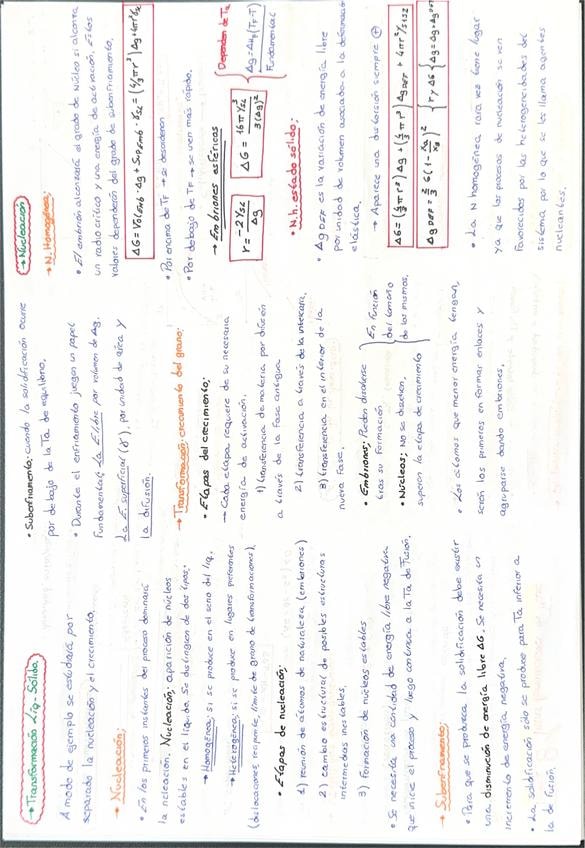 →Transformación Líq-Sólida
A modo de ejemplo se estudiará por
separado la nucleación y el crecimiento.
→ Nucleación:
• En los primeros instantes del proceso dominará
la nucleación. Nucleación: aparición de núcleos
estables en el líquido. Se distinguen de dos tipos:
→ Homogénea: si se produce en el seno del líq.
→ Heterogénea: si se produce en lugares preferentes
(dislocaciones, recipiente, límite de grano de transformaciones).
• Etapas de nucleación:
1) reunión de átomos de naturaleza (embriones)
2) cambio estructural de posibles estructuras
intermedias inestables.
3) Formación de núcleos estables
• Se necesita una cantidad de energía libre negativa
que inicie el proceso y luego continúa a la Ta de Fusión.
→ Subenfriamento:
• Para que se produzca la solidificación debe existir
una disminución de energía libre ΔG. Se necesita un
incremento de energía negativa.
• La solidificación sólo se produce para Ta inferior a
la de fusión.
• Subenfriamento: cuando la solidificación ocurre
por debajo de la Ta de equilibrio.
• Durante el enfriamiento juegan un papel
fundamental: La E libre por volumen de Δg.
La E. superficial (γ), por unidad de área y
la difusión.
→Transformación: crecimiento del grano:
• Etapas del crecimiento:
→ Cada etapa requiere de su necesaria
energía de activación.
1) transferencia de materia por difusión
a través de la fase antigua
2) transferencia a través de la intercara.
3) transferencia en el interior de la
nueva fase.
• Embriones: Pueden disolverse
tras su formación
• Núcleos: No se disuelven,
superan la etapa de crecimiento
En función
del tamaño
de los mismos.
• Los átomos que menor energía tengan,
serán los primeros en formar enlaces y
agruparse dando embriones.
→Nucleación
→ N. Homogénea:
• El embrión alcanzará el grado de Núcleo si alcanza
un radio crítico y una energía de activación. Estos
valores dependerán del grado de subenfriamiento.
ΔG = Vol Emb · Δg + Sup Emb · γSL = (4/3 π r³) Δg + 4π r² γSL
• Por encima de TF → se desordenan
• Por debajo de TF → se ven más rápido.
→ Embriones esféricos
r = -2γSL / Δg
ΔG = 16πγSL³ / 3(Δg)²
Dependen de Ta
Δg = ΔHF (TF-T)
Fundamental
• N.h. estado sólido:
• Δg DEF es la variación de energía libre
por unidad de volumen asociada a la deformación
elástica.
→ Aparece una distorsión siempre ⊕
ΔG = (4/3 π r³) Δg + (4/3 π r³) Δg DEF + 4π r² γS1S2
• La N homogénea rara vez tiene lugar
ya que los procesos de nucleación se ven
favorecidos por las heterogeneidades del
sistema por lo que se les llama agentes
nucleantes.